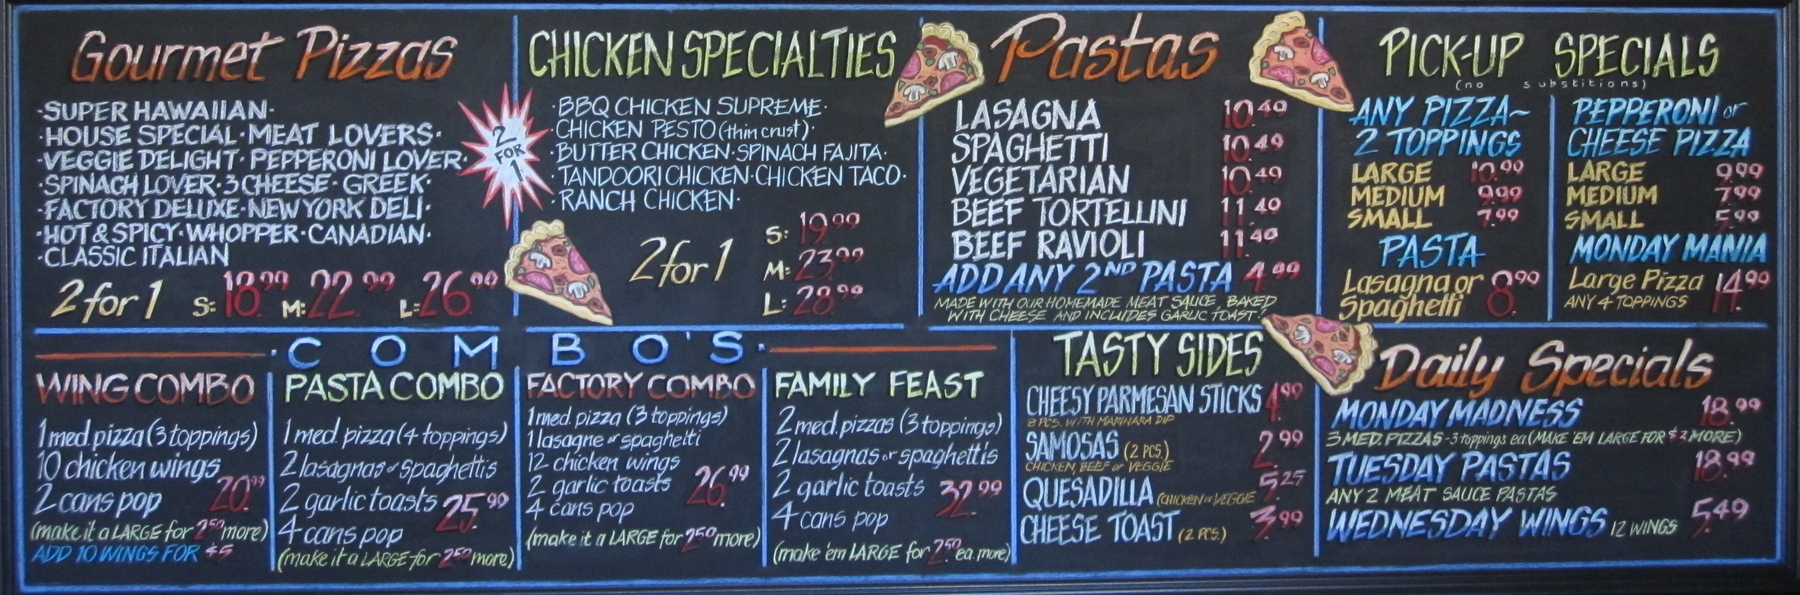 Gourmet Pizzas
·SUPER HAWAIIAN·
·HOUSE SPECIAL·MEAT LOVERS·
·VEGGIE DELIGHT·PEPPERONI LOVER·
·SPINACH LOVER·3 CHEESE·GREEK·
·FACTORY DELUXE·NEW YORK DELI·
·HOT & SPICY·WHOPPER·CANADIAN·
·CLASSIC ITALIAN
2 for 1 S: 18.99 M: 22.99 L: 26.99
2
FOR
1
CHICKEN SPECIALTIES
·BBQ CHICKEN SUPREME·
·CHICKEN PESTO (thin crust)·
·BUTTER CHICKEN·SPINACH FAJITA·
·TANDOORI CHICKEN·CHICKEN TACO·
·RANCH CHICKEN·
2 for 1
S: 19.99
M: 23.99
L: 28.99
Pastas
LASAGNA 10.49
SPAGHETTI 10.49
VEGETARIAN 10.49
BEEF TORTELLINI 11.49
BEEF RAVIOLI 11.49
ADD ANY 2ND PASTA 4.99
MADE WITH OUR HOMEMADE MEAT SAUCE, BAKED
WITH CHEESE AND INCLUDES GARLIC TOAST!
PICK-UP SPECIALS
(no substitions)
ANY PIZZA~
2 TOPPINGS
LARGE 10.99
MEDIUM 9.99
SMALL 7.99
PASTA
Lasagna or
Spaghetti 8.99
PEPPERONI or
CHEESE PIZZA
LARGE 9.99
MEDIUM 7.99
SMALL 5.99
MONDAY MANIA
Large Pizza 14.99
ANY 4 TOPPINGS
·COMBO'S·
WING COMBO
1 med. pizza (3 toppings)
10 chicken wings
2 cans pop 20.99
(make it a LARGE for 2.50 more)
ADD 10 WINGS FOR $5
PASTA COMBO
1 med. pizza (4 toppings)
2 lasagnas or spaghettis
2 garlic toasts 25.99
4 cans pop
(make it a LARGE for 2.50 more)
FACTORY COMBO
1 med. pizza (3 toppings)
1 lasagne or spaghetti
12 chicken wings
2 garlic toasts 26.99
4 cans pop
(make it a LARGE for 2.50 more)
FAMILY FEAST
2 med. pizzas (3 toppings)
2 lasagnas or spaghettis
2 garlic toasts 32.99
4 cans pop
(make 'em LARGE for 2.50 ea. more)
TASTY SIDES
CHEESY PARMESAN STICKS 4.99
8 PCS. WITH MARINARA DIP
SAMOSAS (2 PCS.) 2.99
CHICKEN, BEEF or VEGGIE
QUESADILLA (CHICKEN or VEGGIE 5.25
CHEESE TOAST (2 PCS.) 3.99
Daily Specials
MONDAY MADNESS 18.99
3 MED. PIZZAS - 3 toppings ea (MAKE 'EM LARGE FOR $2 MORE)
TUESDAY PASTAS 18.99
ANY 2 MEAT SAUCE PASTAS
WEDNESDAY WINGS 12 WINGS 5.49